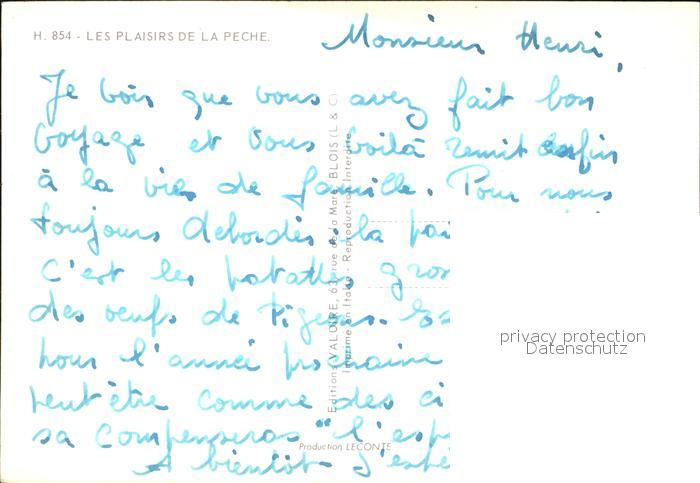 H. 854 - LES PLAISIRS DE LA PECHE.
Monsieur Henri,
Je vois que vous avez fait bon
voyage et vous voilà remit enfin
à la vie de famille. Pour nous
toujours debordés. la
C'est les patattes gros
des oeufs de Pigeons.
pour l'année prochaine
peut être comme des ci
sa compenseras "l'esp
A bientôt J'espè
Editions VALOIRE, 63, rue de la Mare, BLOIS (L & C)
Imprimé en Italie - Reproduction Interdite
Production LECONTE
privacy protection
Datenschutz